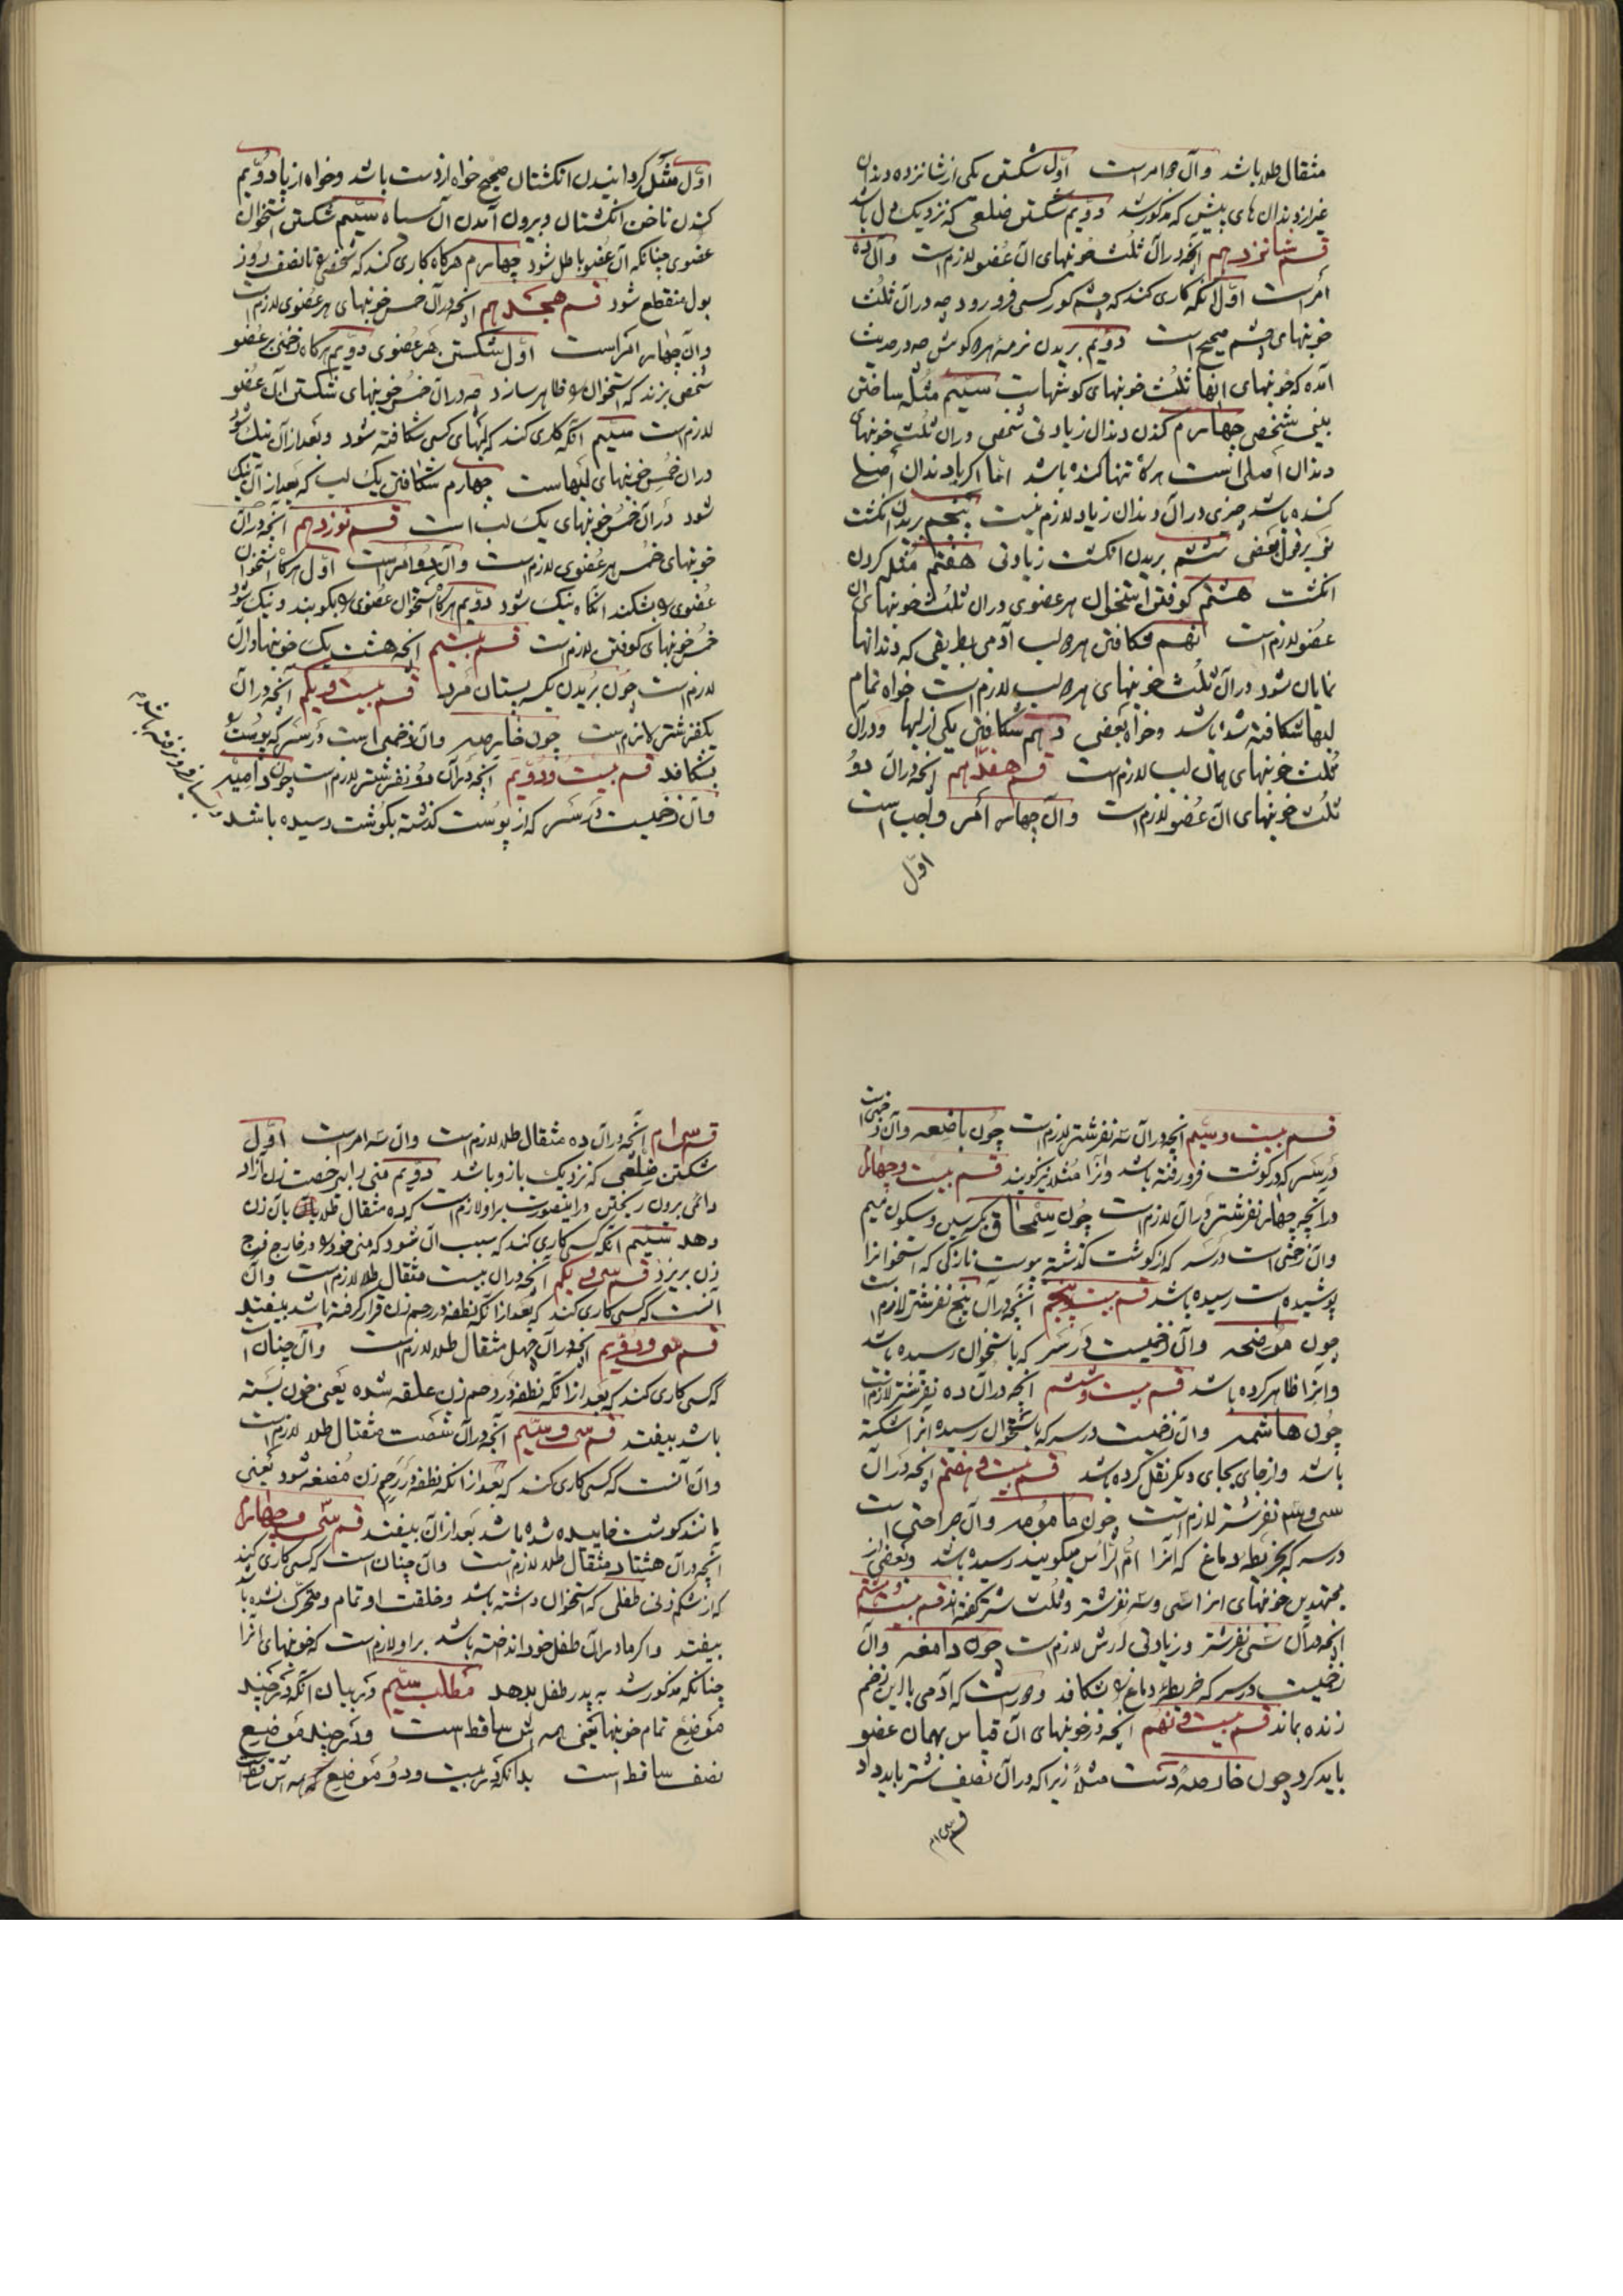 مثقال طلا باشد وآن دو امر است اوّل شکستن یکی از شانزده دندان
غیر از دندان های پیش که مذکور شد دویّم شکستن ضلعی که نزدیک دل باشد
قسم شانزدهم آنچه در آن ثلث خونبهای آن عضو لازم است وآن ده
امر است اوّل آنکه کاری کند که چشم کور کسی فرو رود چه در آن ثلث
خونبهای چشم صحیح است دویّم بریدن نرمهٔ هر دو گوش چه در حدیث
آمده که خونبهای آنها ثلث خونبهای گوشهاست سیّیم مثله ساختن
بینی شخصی چهارم کندن دندان زیادتی شخصی ودر آن ثلث خونبهای
دندان اصلی است هرگاه تنها کنده باشد امّا اگر با دندان اصلی
کنده باشد چیزی در آن دندان زیاد لازم نیست پنجم بریدن انگشت
بر قول بعضی ششم بریدن انگشت زیادتی هفتم مثله کردن
انگشت هشتم کوفتن استخوان هر عضوی ودر آن ثلث خونبهای آن
عضو لازم است نهم شکافتن هر دو لب آدمی بطریقی که دندانها
نمایان شود در آن ثلث خونبهای هر دو لب لازم است خواه تمام
لبها شکافته شده باشد وخواه بعضی دهم شکافتن یکی از لبها ودر آن
ثلث خونبهای همان لب لازم است قسم هفدهم آنچه در آن دو
ثلث خونبهای آن عضو لازم است وآن چهار امر واجب است
اوّل
اوّل مثل گردانیدن انگشتان صحیح خواه از دست باشد وخواه از پا دویّم
کندن ناخن انگشتان وبیرون آمدن آن سیاه سیّیم شکستن استخوان
عضوی چنانکه آن عضو باطل شود چهارم هرگاه کاری کند که شخصی را تا نصف روز
بول منقطع شود قسم هجدهم آنچه در آن خمس خونبهای هر عضوی لازم است
وآن چهار امر است اوّل شکستن هر عضوی دویّم هرگاه زخمی بر عضو
شخصی بزند که استخوان را ظاهر سازد چه در آن خمس خونبهای شکستن آن عضو
لازم است سیّیم آنکه کاری کند که لبهای کسی شکافته شود وبعد از آن نیک شود
در آن خمس خونبهای لبهاست چهارم شکافتن یک لب که بعد از آن نیک
شود در آن خمس خونبهای یک لب است قسم نوزدهم آنچه در آن
خونبهای خمس هر عضوی لازم است وآن دو امر است اوّل هرگاه استخوان
عضوی را بشکند آنگاه نیک شود دویّم هرگاه استخوان عضوی را بکوبند ونیک شود
خمس خونبهای کوفتن لازم است قسم بیستم آنچه هشت یک خونبها در آن
لازم است چون بریدن یک پستان مرد قسم بیست ویکم آنچه در آن
یک نفر شتر لازم است چون خارصه وآن زخمی است در سر که پوست را
بشکافد قسم بیست ودویّم آنچه در آن دو نفر شتر لازم است چون دامیه
وآن زخمیست در سر که از پوست گذشته بگوشت رسیده باشد
قسم بیست وسیّیم آنچه در آن سه نفر شتر لازم است چون باضعه وآن زخمی است
در سر که در گوشت فرو رفته باشد وآنرا متلاحمه نیز گویند قسم بیست وچهارم
در آنچه چهار نفر شتر در آن لازم است چون سمحاق بکسر سین وسکون میم
وآن زخمی است در سر که از گوشت گذشته بپوست نازکی که استخوانرا
پوشیده است رسیده باشد قسم بیست وپنجم آنچه در آن پنج نفر شتر لازم است
چون موضحه وآن زخمیست در سر که باستخوان رسیده باشد
وآنرا ظاهر کرده باشد قسم بیست وششم آنچه در آن ده نفر شتر لازم است
چون هاشمه وآن زخمیست در سر که باستخوان رسیده آنرا شکسته
باشد واز جای بجای دیگر نقل کرده باشد قسم بیست وهفتم آنچه در آن
سی وسه نفر شتر لازم است چون مامومه وآن جراحتی است
در سر که بخریطه دماغ که آنرا امّ الرأس میگویند رسیده باشد وبعضی از
مجتهدین خونبهای آنرا سی وسه نفر شتر وثلث شتر گفته‌اند قسم بیست وهشتم
آنچه در آن سی نفر شتر وزیادتی ارش لازم است چون دامغه وآن
زخمیست در سر که خریطهٔ دماغ را بشکافد ودور است که آدمی با این زخم
زنده بماند قسم بیست ونهم آنچه در خونبهای آن قیاس بهمان عضو
باید کرد چون خارصهٔ دست مثلاً زیرا که در آن نصف شتر باید داد
قسم سی‌ام
قسم سی‌ام آنچه در آن ده مثقال طلا لازم است وآن سه امر است اوّل
شکستن ضلعی که نزدیک بازو باشد دویّم منی را بی رخصت زن آزاد
دائمی بیرون ریختن در اینصورت بر او لازم است که ده مثقال طلا بآن زن
دهد سیّیم آنکه کسی کاری کند که سبب آن شود که منی خود را در خارج فرج
زن بریزد قسم سی ویکم آنچه در آن بیست مثقال طلا لازم است وآن
آنست که کسی کاری کند که بعد از آنکه نطفه در رحم زن قرار گرفته باشد بیفتد
قسم سی ودویّم آنچه در آن چهل مثقال طلا لازم است وآن چنان است
که کسی کاری کند که بعد از آنکه نطفه در رحم زن علقه شده یعنی خون بسته
باشد بیفتد قسم سی وسیّیم آنچه در آن شصت مثقال طلا لازم است
وآن آنست که کسی کاری کند که بعد از آنکه نطفه در رحم زن مضغه شود یعنی
مانند گوشت خاییده شده باشد بعد از آن بیفتد قسم سی وچهارم
آنچه در آن هشتاد مثقال طلا لازم است وآن چنان است که کسی کاری کند
که از شکم زنی طفلی که استخوان داشته باشد وخلقت او تمام ومتحرک نشده باشد
بیفتد واگر مادر آن طفل خود انداخته باشد بر او لازم است که خونبهای آنرا
چنانکه مذکور شد به پدر طفل بدهد مطلب سیّیم در بیان آنکه در چند
موضع تمام خونبها یعنی همه اش ساقط است ودر چند موضع
نصف ساقط است بدانکه در بیست ودو موضع همه اش ساقط است